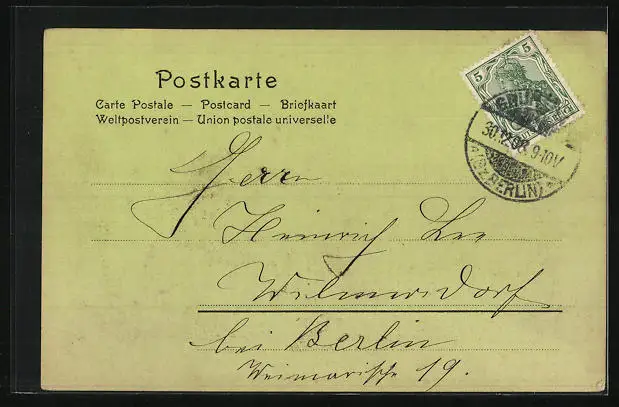 Postkarte
Carte Postale — Postcard — Briefkaart
Weltpostverein — Union postale universelle
5 5
30.12.03. 9-10V
BERLIN
Herrn
Heinrich
Wilmersdorf
bei Berlin
Weimarische 19.